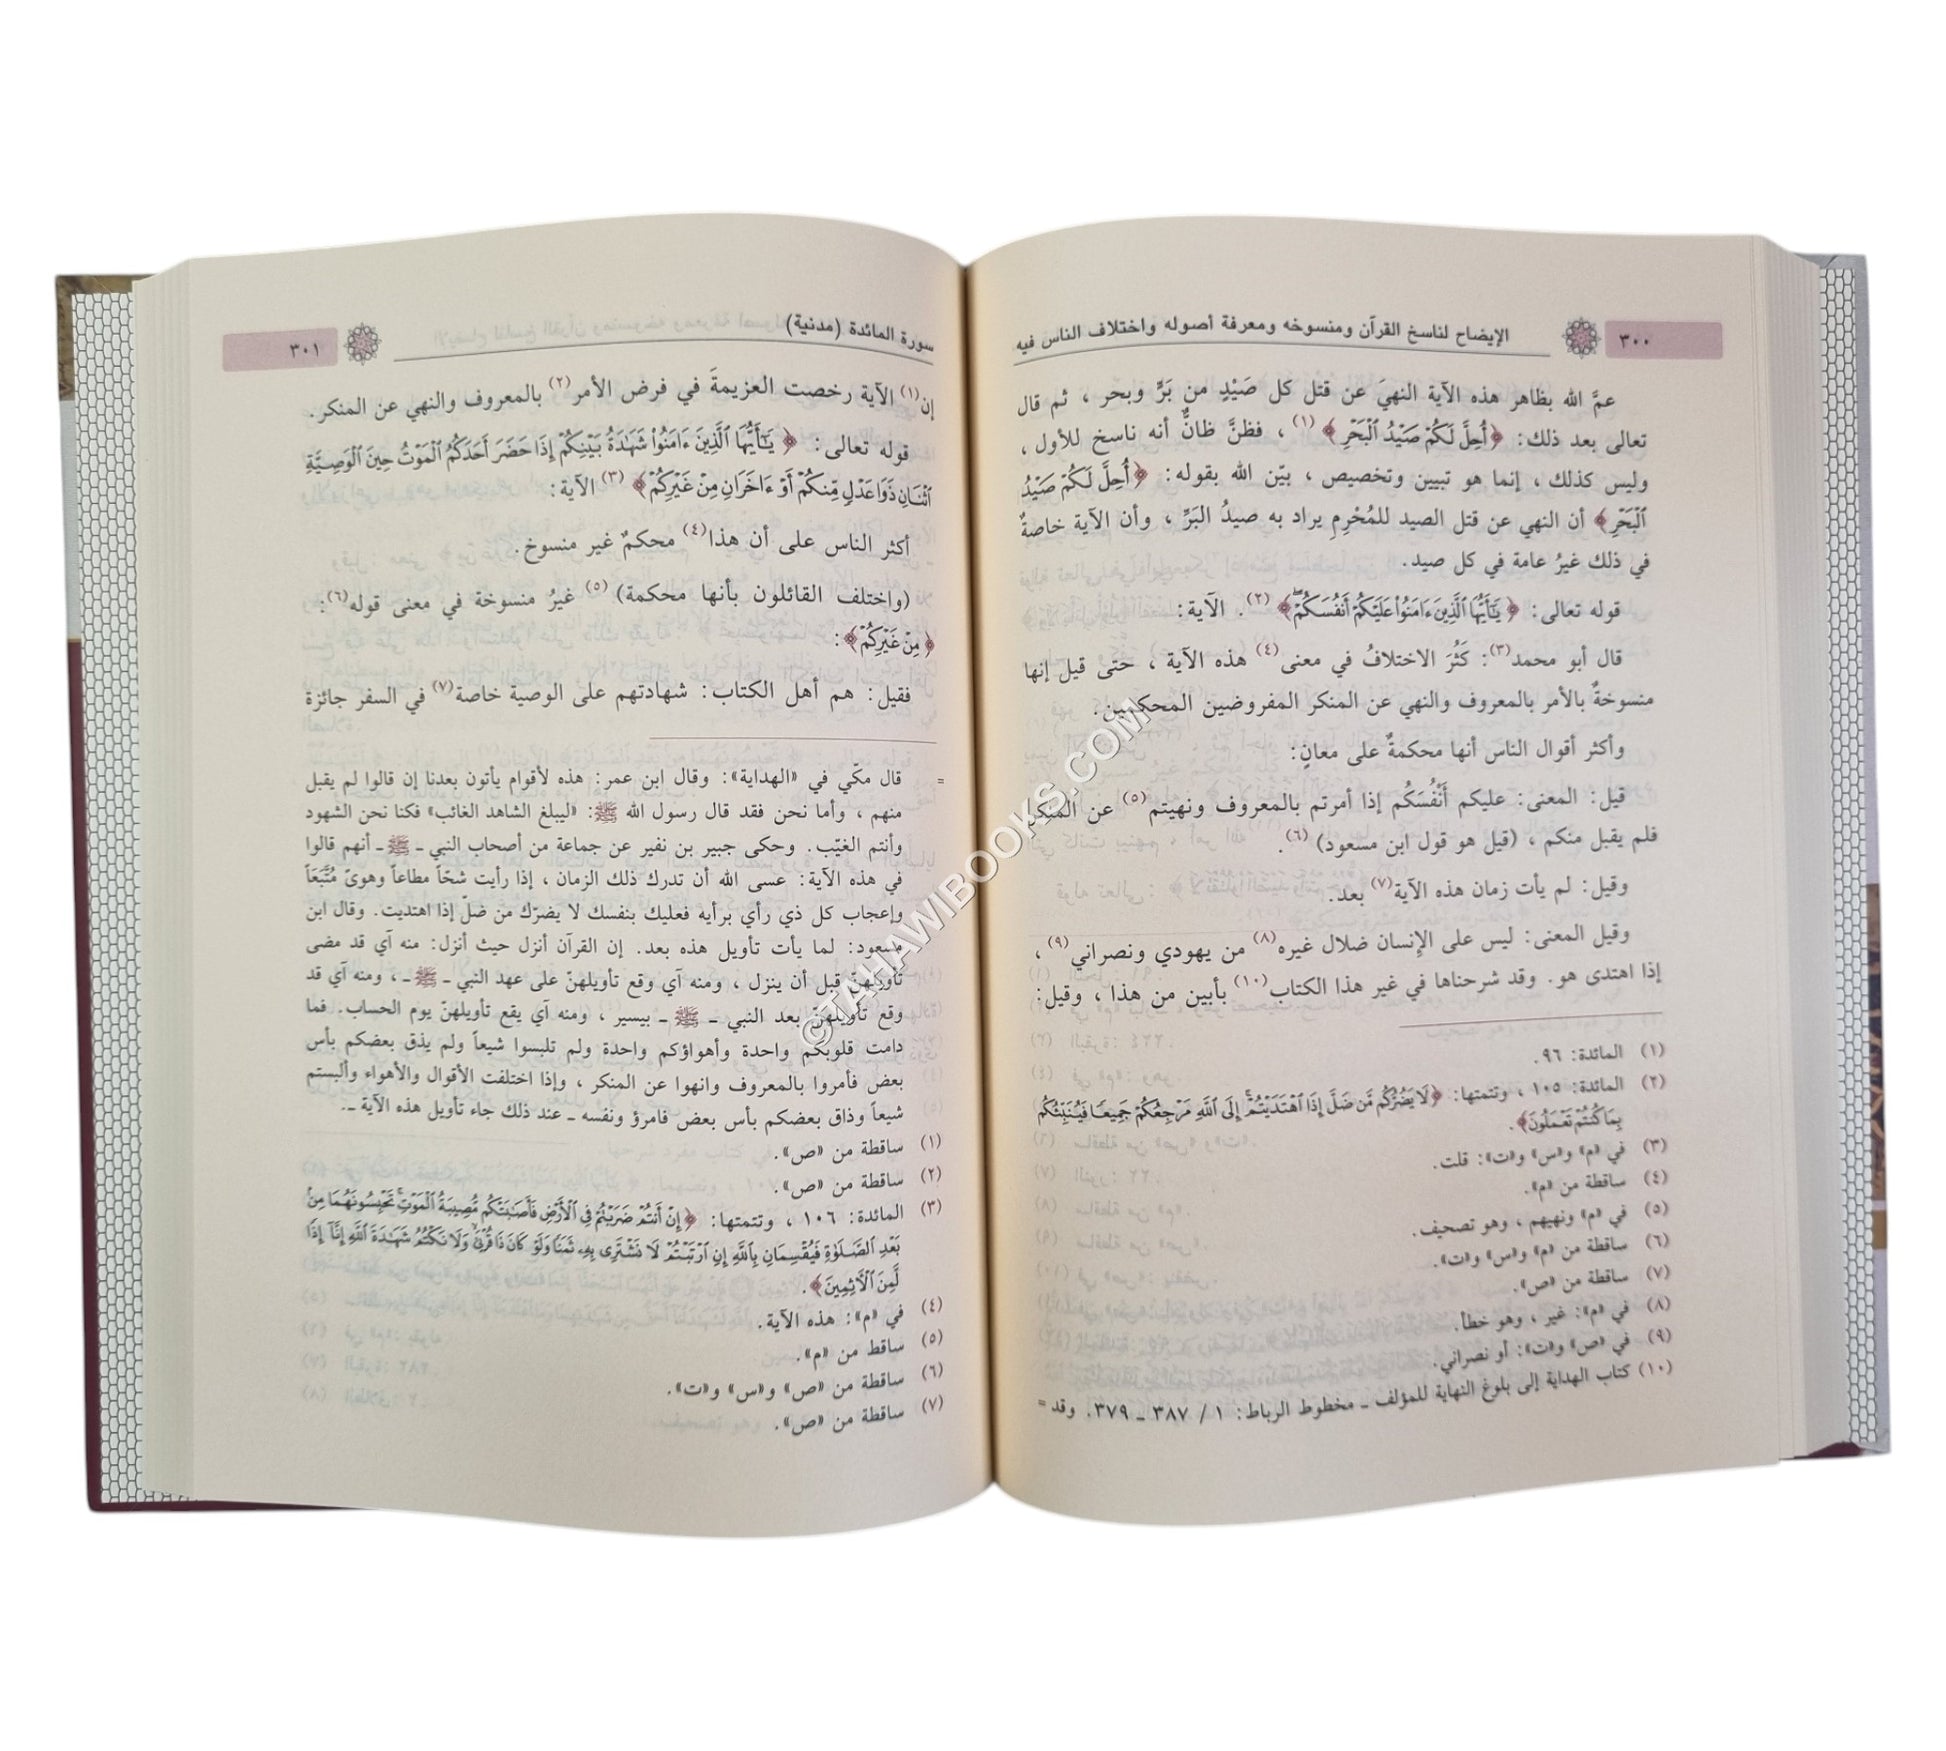 ٣٠٠ الإيضاح لناسخ القرآن ومنسوخه ومعرفة أصوله واختلاف الناس فيه
عمَّ الله بظاهر هذه الآية النهيَ عن قتل كل صَيْدٍ من بَرٍّ وبحر ، ثم قال
تعالى بعد ذلك: ﴿أُحِلَّ لَكُمْ صَيْدُ الْبَحْرِ﴾ (١) ، فظنَّ ظانٌّ أنه ناسخ للأول ،
وليس كذلك ، إنما هو تبيين وتخصيص ، بيّن الله بقوله: ﴿أُحِلَّ لَكُمْ صَيْدُ
الْبَحْرِ﴾ أن النهي عن قتل الصيد للمُحْرِمِ يراد به صيدُ البَرِّ ، وأن الآية خاصةٌ
في ذلك غيرُ عامة في كل صيد.
قوله تعالى: ﴿يَٰٓأَيُّهَا ٱلَّذِينَ ءَامَنُوا۟ عَلَيْكُمْ أَنفُسَكُمْ﴾ (٢). الآية:
قال أبو محمد(٣): كَثُرَ الاختلافُ في معنى(٤) هذه الآية ، حتى قيل إنها
منسوخةٌ بالأمر بالمعروف والنهي عن المنكر المفروضين المحكمين.
وأكثر أقوال الناس أنها محكمةٌ على معانٍ:
قيل: المعنى: عليكم أَنْفُسَكُم إذا أمرتم بالمعروف ونهيتم(٥) عن المنكر
فلم يقبل منكم ، (قيل هو قول ابن مسعود) (٦).
وقيل: لم يأت زمان هذه الآية(٧) بعد.
وقيل المعنى: ليس على الإنسان ضلال غيره(٨) من يهودي ونصراني(٩) ،
إذا اهتدى هو. وقد شرحناها في غير هذا الكتاب(١٠) بأبين من هذا ، وقيل:
(١) المائدة: ٩٦.
(٢) المائدة: ١٠٥ ، وتتمتها: ﴿لَا يَضُرُّكُم مَّن ضَلَّ إِذَا ٱهْتَدَيْتُمْ إِلَى ٱللَّهِ مَرْجِعُكُمْ جَمِيعًا فَيُنَبِّئُكُم
بِمَا كُنتُمْ تَعْمَلُونَ﴾.
(٣) في «م» و«س» و«ت»: قلت.
(٤) ساقطة من «م».
(٥) في «م» ونهيهم ، وهو تصحيف.
(٦) ساقطة من «م» و«س» و«ت».
(٧) ساقطة من «ص».
(٨) في «م»: غير ، وهو خطأ.
(٩) في «ص» و«ت»: أو نصراني.
(١٠) كتاب الهداية إلى بلوغ النهاية للمؤلف ـ مخطوط الرباط: ١ / ٣٨٧ ـ ٣٧٩. وقد =
سورة المائدة (مدنية) ٣٠١
إن(١) الآية رخصت العزيمةَ في فرض الأمر(٢) بالمعروف والنهي عن المنكر.
قوله تعالى: ﴿يَٰٓأَيُّهَا ٱلَّذِينَ ءَامَنُوا۟ شَهَٰدَةُ بَيْنِكُمْ إِذَا حَضَرَ أَحَدَكُمُ ٱلْمَوْتُ حِينَ ٱلْوَصِيَّةِ
ٱثْنَانِ ذَوَا عَدْلٍ مِّنكُمْ أَوْ ءَاخَرَانِ مِنْ غَيْرِكُمْ﴾ (٣) الآية:
أكثر الناس على أن هذا(٤) محكمٌ غير منسوخ.
(واختلف القائلون بأنها محكمة) (٥) غيرُ منسوخة في معنى قوله(٦):
﴿مِنْ غَيْرِكُمْ﴾:
فقيل: هم أهل الكتاب: شهادتهم على الوصية خاصة(٧) في السفر جائزة
= قال مكّي في «الهداية»: وقال ابن عمر: هذه لأقوام يأتون بعدنا إن قالوا لم يقبل
منهم ، وأما نحن فقد قال رسول الله ﷺ: «ليبلغ الشاهد الغائب» فكنا نحن الشهود
وأنتم الغيّب. وحكى جبير بن نفير عن جماعة من أصحاب النبي ـ ﷺ ـ أنهم قالوا
في هذه الآية: عسى الله أن تدرك ذلك الزمان ، إذا رأيت شحّاً مطاعاً وهوىً مُتَّبَعَاً
وإعجاب كل ذي رأي برأيه فعليك بنفسك لا يضرّك من ضلّ إذا اهتديت. وقال ابن
مسعود: لما يأت تأويل هذه بعد. إن القرآن أنزل حيث أنزل: منه آي قد مضى
تأويلهنّ قبل أن ينزل ، ومنه آي وقع تأويلهنّ على عهد النبي ـ ﷺ ـ ، ومنه آي قد
وقع تأويلهنّ بعد النبي ـ ﷺ ـ بيسير ، ومنه آي يقع تأويلهنّ يوم الحساب. فما
دامت قلوبكم واحدة وأهواؤكم واحدة ولم تلبسوا شيعاً ولم يذق بعضكم بأس
بعض فأمروا بالمعروف وانهوا عن المنكر ، وإذا اختلفت الأقوال والأهواء وألبستم
شيعاً وذاق بعضكم بأس بعض فامرؤ ونفسه ـ عند ذلك جاء تأويل هذه الآية ـ.
(١) ساقطة من «ص».
(٢) ساقطة من «ص».
(٣) المائدة: ١٠٦ ، وتتمتها: ﴿إِنْ أَنتُمْ ضَرَبْتُمْ فِى ٱلْأَرْضِ فَأَصَٰبَتْكُم مُّصِيبَةُ ٱلْمَوْتِ تَحْبِسُونَهُمَا مِنۢ
بَعْدِ ٱلصَّلَوٰةِ فَيُقْسِمَانِ بِٱللَّهِ إِنِ ٱرْتَبْتُمْ لَا نَشْتَرِى بِهِۦ ثَمَنًا وَلَوْ كَانَ ذَا قُرْبَىٰ وَلَا نَكْتُمُ شَهَٰدَةَ ٱللَّهِ إِنَّآ إِذًا
لَّمِنَ ٱلْءَاثِمِينَ﴾.
(٤) في «م»: هذه الآية.
(٥) ساقط من «م».
(٦) ساقطة من «ص» و«س» و«ت».
(٧) ساقطة من «ص».
©TAHAWIBOOKS.COM